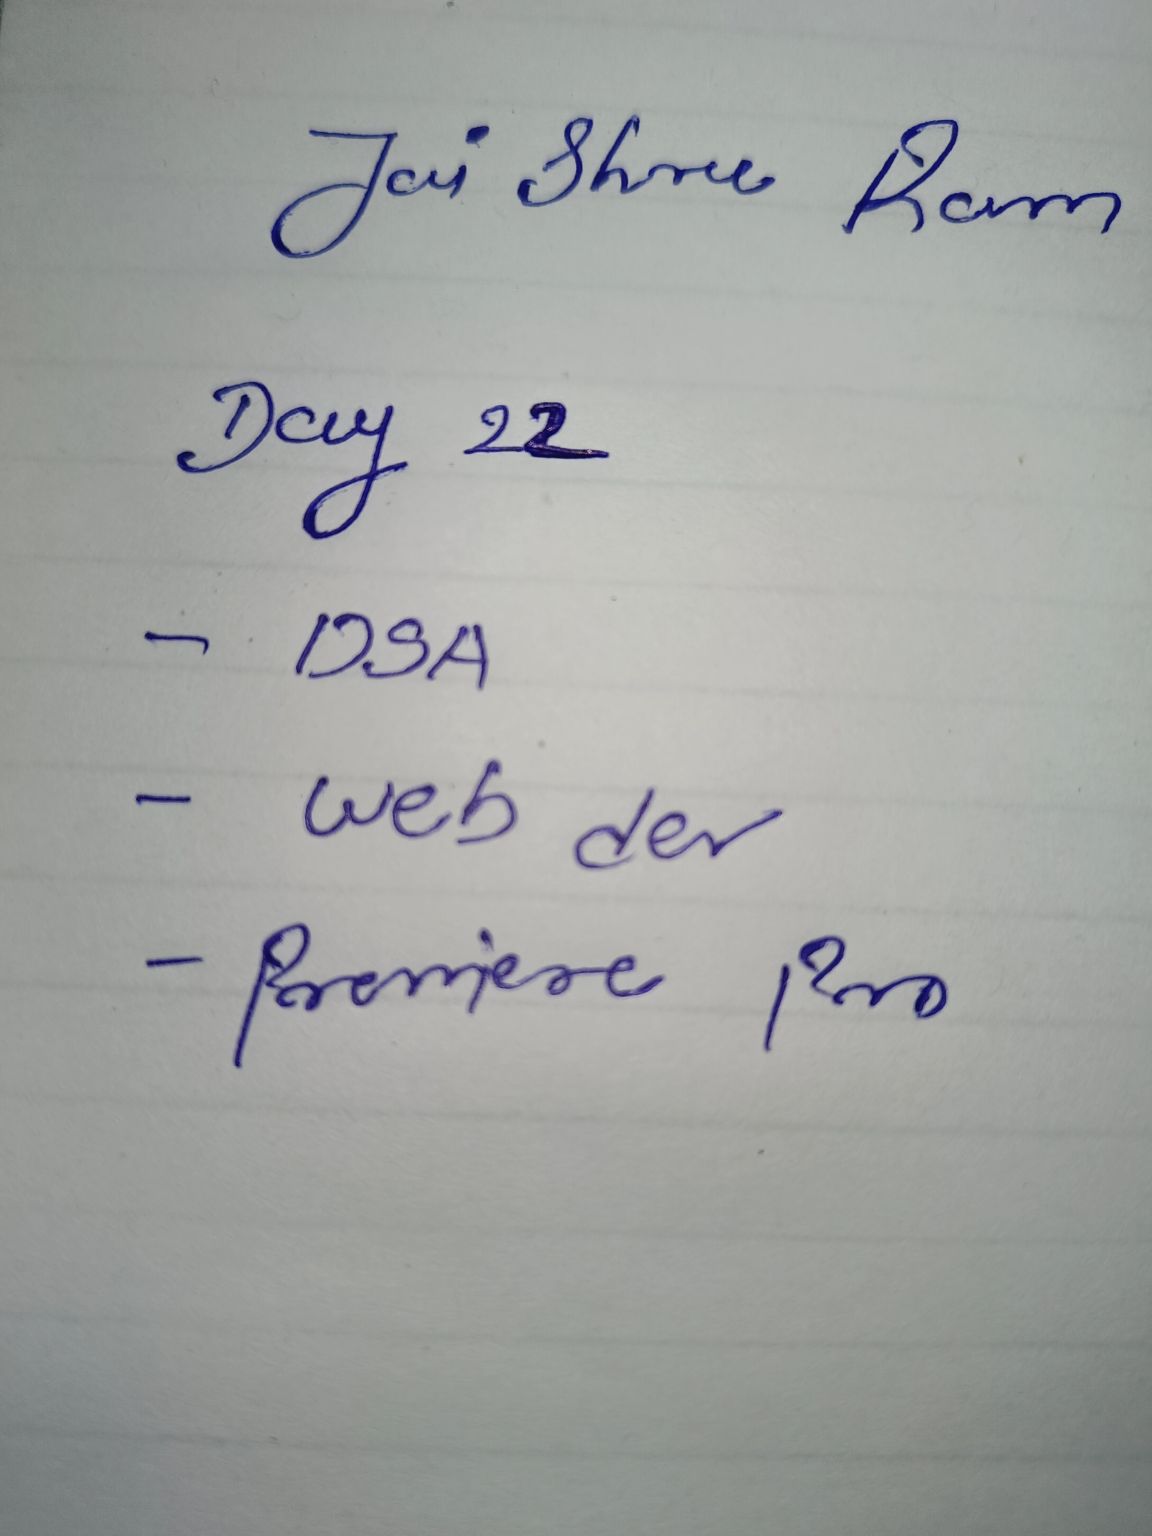 Jai Shree Ram
Day 22
- DSA
- web dev
- Premiere Pro